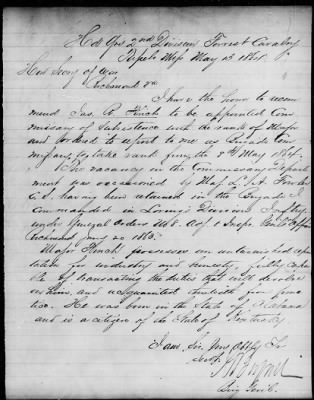 Hd Qrs 2nd Division Forrest Cavalry
Tupelo Miss May 23 1864.
Hon Secry of War
Richmond Va
I have the honor to recom
mend Jas. R. Finch to be appointed Com
missary of Subsistence with the rank of Major
and ordered to report to me as Brigade Com
missary, to take rank from the 2nd May 1864.
The vacancy in the Commissary Depart
ment was occasioned by Maj
C.S. having been retained in the Brigade I
Commanded in Loring's Division Inftry
under General Orders No 8. Adjt & Inspr Genls Office
Richmond
Major Finch possesses an untarnished repu
tation for industry and honesty, fully capa
ble of transacting the duties that will devolve
on him, and acquainted
tice. He was born in the State of Alabama
and is a citizen of the State of Kentucky
I am Sir Your Obt
Servt.
Brig Genl.